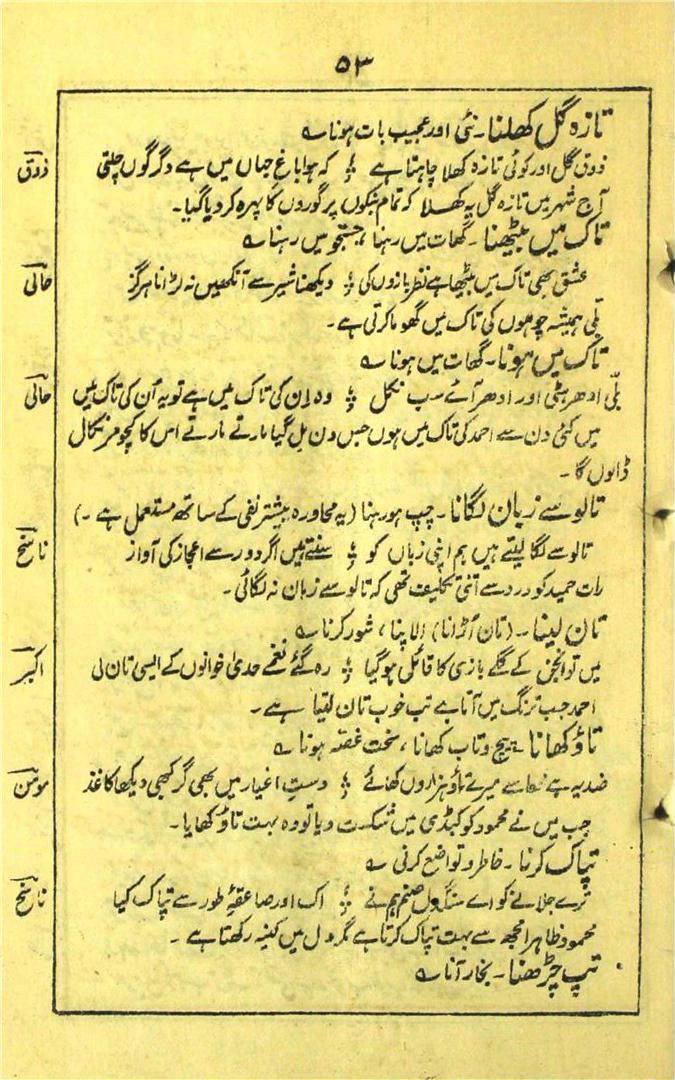 ۵۳
تازہ گل کھلنا۔ نئی اور عجیب بات ہونا ؎
ذوق گل اور کوئی تازہ کھلا چاہتا ہے ؛ کہ ہوا باغِ جہاں میں ہے دگرگوں چلتی ذوق
آج شہر میں تازہ گل یہ کھلا کہ تمام بنکوں پر گوروں کا پہرہ کر دیا گیا۔
تاک میں بیٹھنا۔ گھات میں رہنا، جستجو میں رہنا ؎
عشق بھی تاک میں بیٹھا ہے نظر بازوں کی ؛ دیکھنا شیر سے آنکھیں نہ لڑانا ہرگز حالی
بلّی ہمیشہ چوہوں کی تاک میں گھوما کرتی ہے۔
تاک میں ہونا۔ گھات میں ہونا ؎
بلّی ادھر ہٹی اور ادھر آئے سب نکل ؛ وہ اِن کی تاک میں ہے تو یہ اُن کی تاک میں حالی
میں کئی دن سے احمد کی تاک میں ہوں جس دن مل گیا مارتے مارتے اس کا کچومر نکال
ڈالوں گا۔
تالو سے زبان لگانا۔ چپ ہو رہنا (یہ محاورہ بیشتر نفی کے ساتھ مستعمل ہے۔)
تالو سے لگا لیتے ہیں ہم اپنی زباں کو ؛ سنتے ہیں اگر دور سے اعجاز کی آواز ناسخ
رات حمید کو درد سے اتنی تکلیف تھی کہ تالو سے زبان نہ لگائی۔
تان لینا۔ (تان اُڑانا) الاپنا، شور کرنا ؎
میں تو انجن کے گلے بازی کا قائل ہو گیا ؛ رہ گئے نغمے حدیٰ خوانوں کے ایسی تان لی اکبر
احمد جب ترنگ میں آتا ہے تب خوب تان لیتا ہے۔
تاؤ کھانا۔ پیچ و تاب کھانا، سخت غصّہ ہونا ؎
ضد یہ ہے میرے تاؤ ہزاروں کھائے ؛ دستِ اغیار میں بھی گر کبھی دیکھا کاغذ مومن
جب میں نے محمود کو کبڈی میں شکست دیا تو وہ بہت تاؤ کھایا۔
تپاک کرنا۔ خاطر و تواضع کرنی ؎
ترے جلانے کو اے سنگدل صنم ہم نے ؛ اک اور صاعقۂ طور سے تپاک کیا ناسخ
محمود ظاہرا مجھ سے بہت تپاک کرتا ہے مگر دل میں کینہ رکھتا ہے۔
تپ چڑھنا۔ بخار آنا ؎